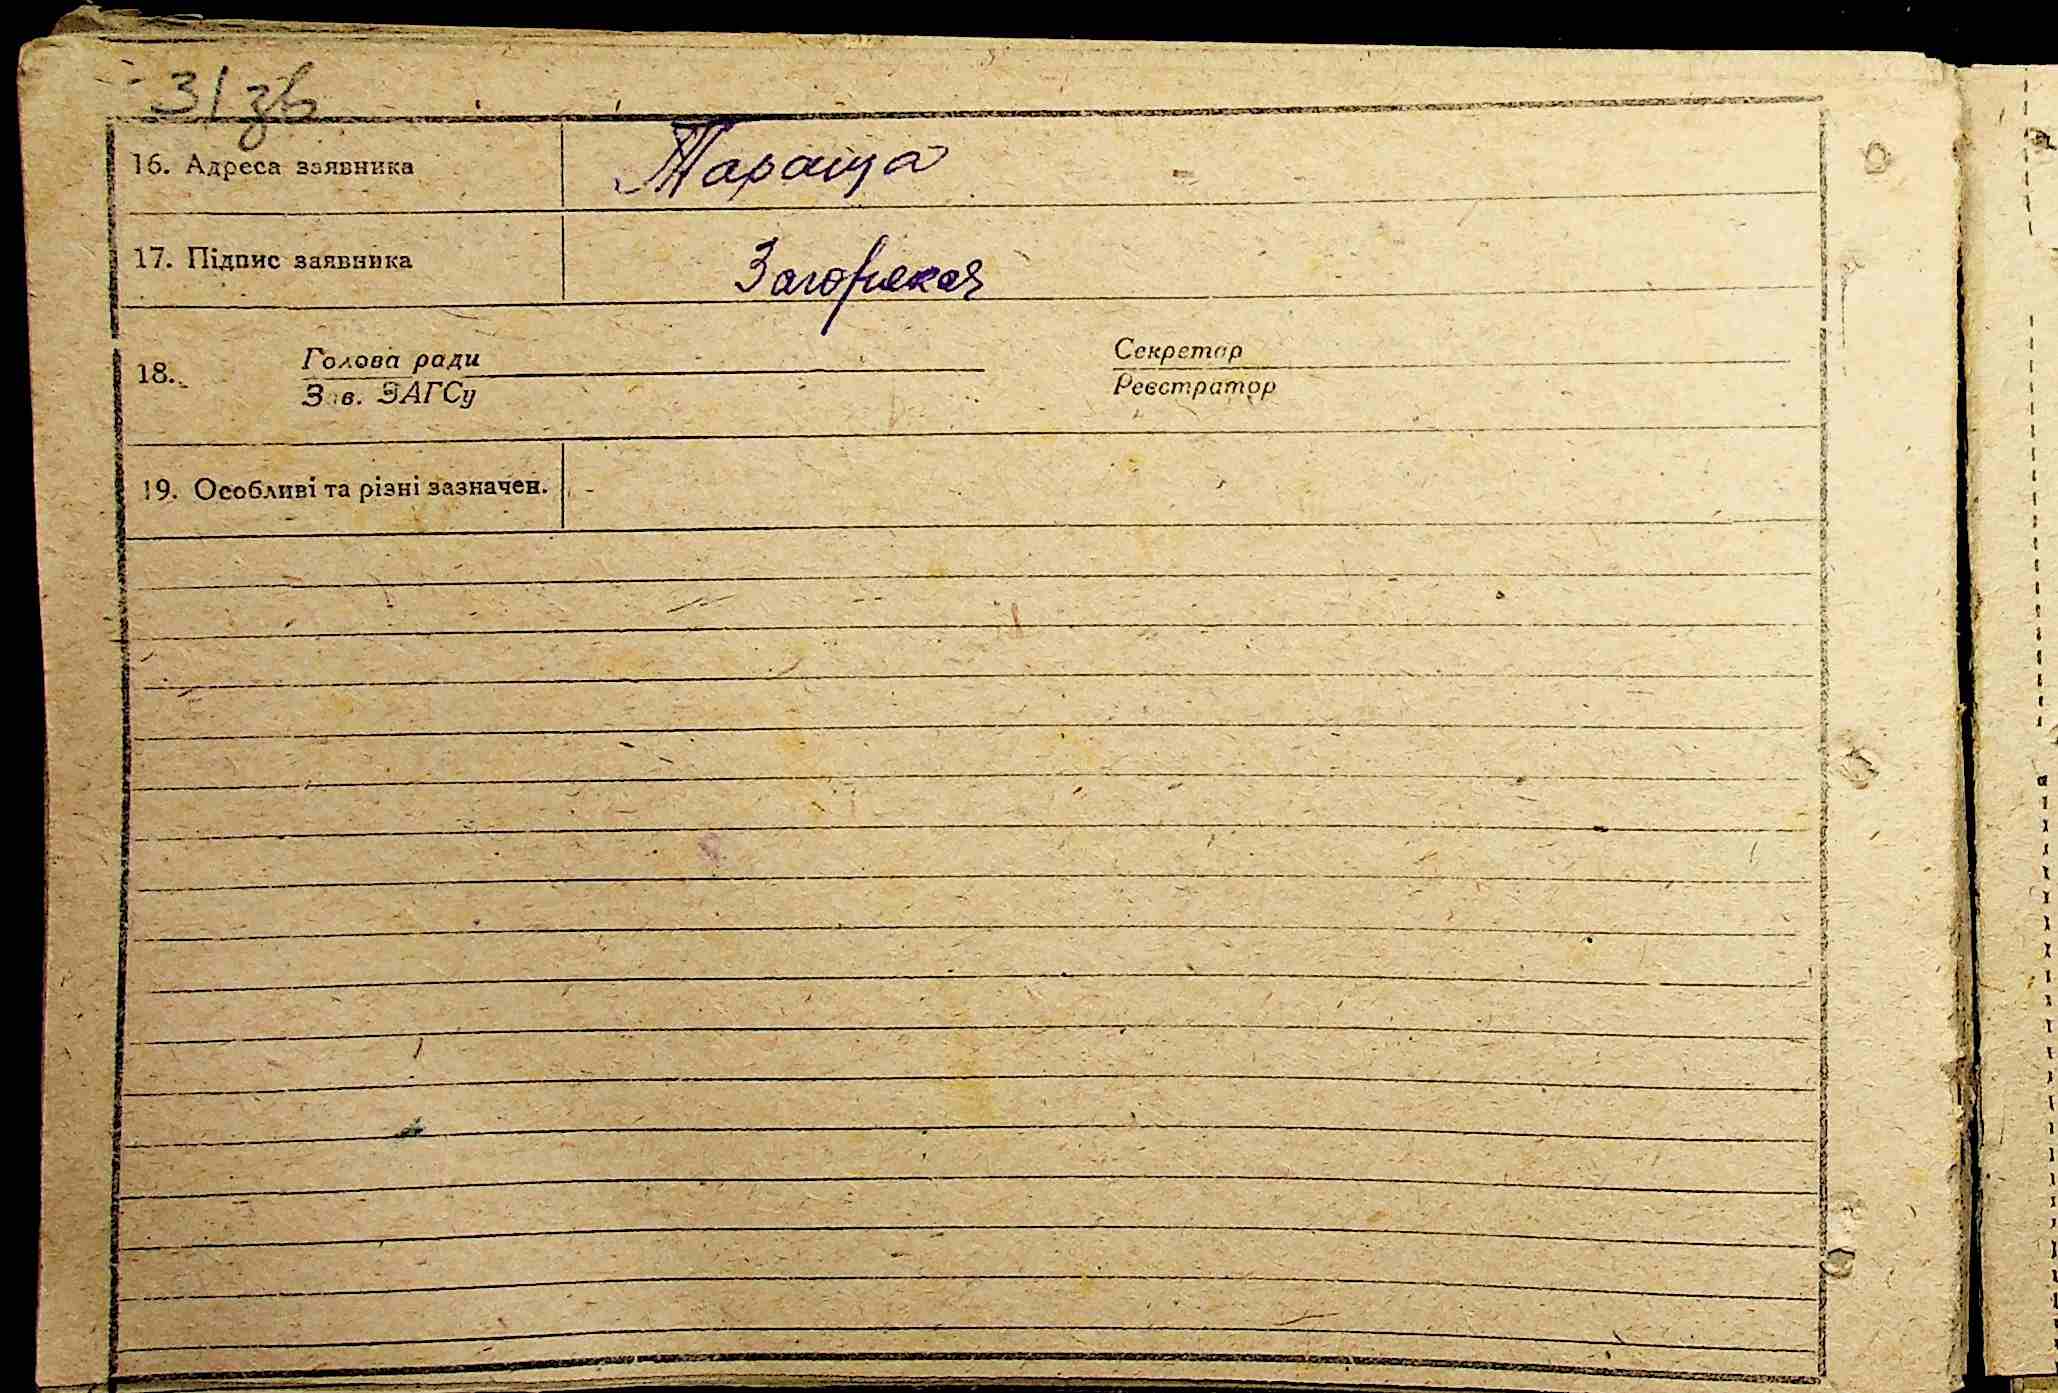 31 зв
16. Адреса заявника Тараща
17. Підпис заявника Загорская
18. Голова ради Секретар
Зав. ЗАГСу Реєстратор
19. Особливі та різні зазначен.